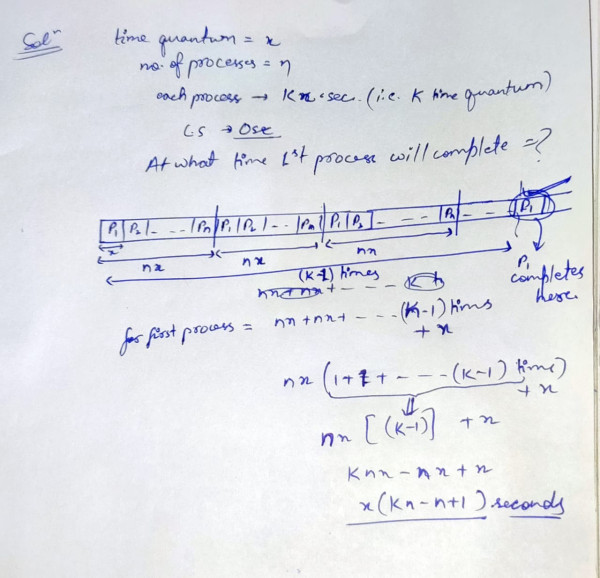 Solⁿ time quantum = x
no. of processes = n
each process → Kx sec. (i.e. K time quantum)
CS → 0 sec
At what time 1st process will complete = ?
P1 P2 - - - Pn P1 P2 - - - Pn P1 P2 - - - - Pn - - - P1
x
nx nx nx
(K-1) times
P1 completes here.
nx + nx + - - - -
for first process = nx + nx + - - - - (K-1) times + x
nx (1 + 1 + - - - - (K-1) time) + x
⇓
nx [(K-1)] + x
Knx - nx + x
x (Kn - n + 1) seconds